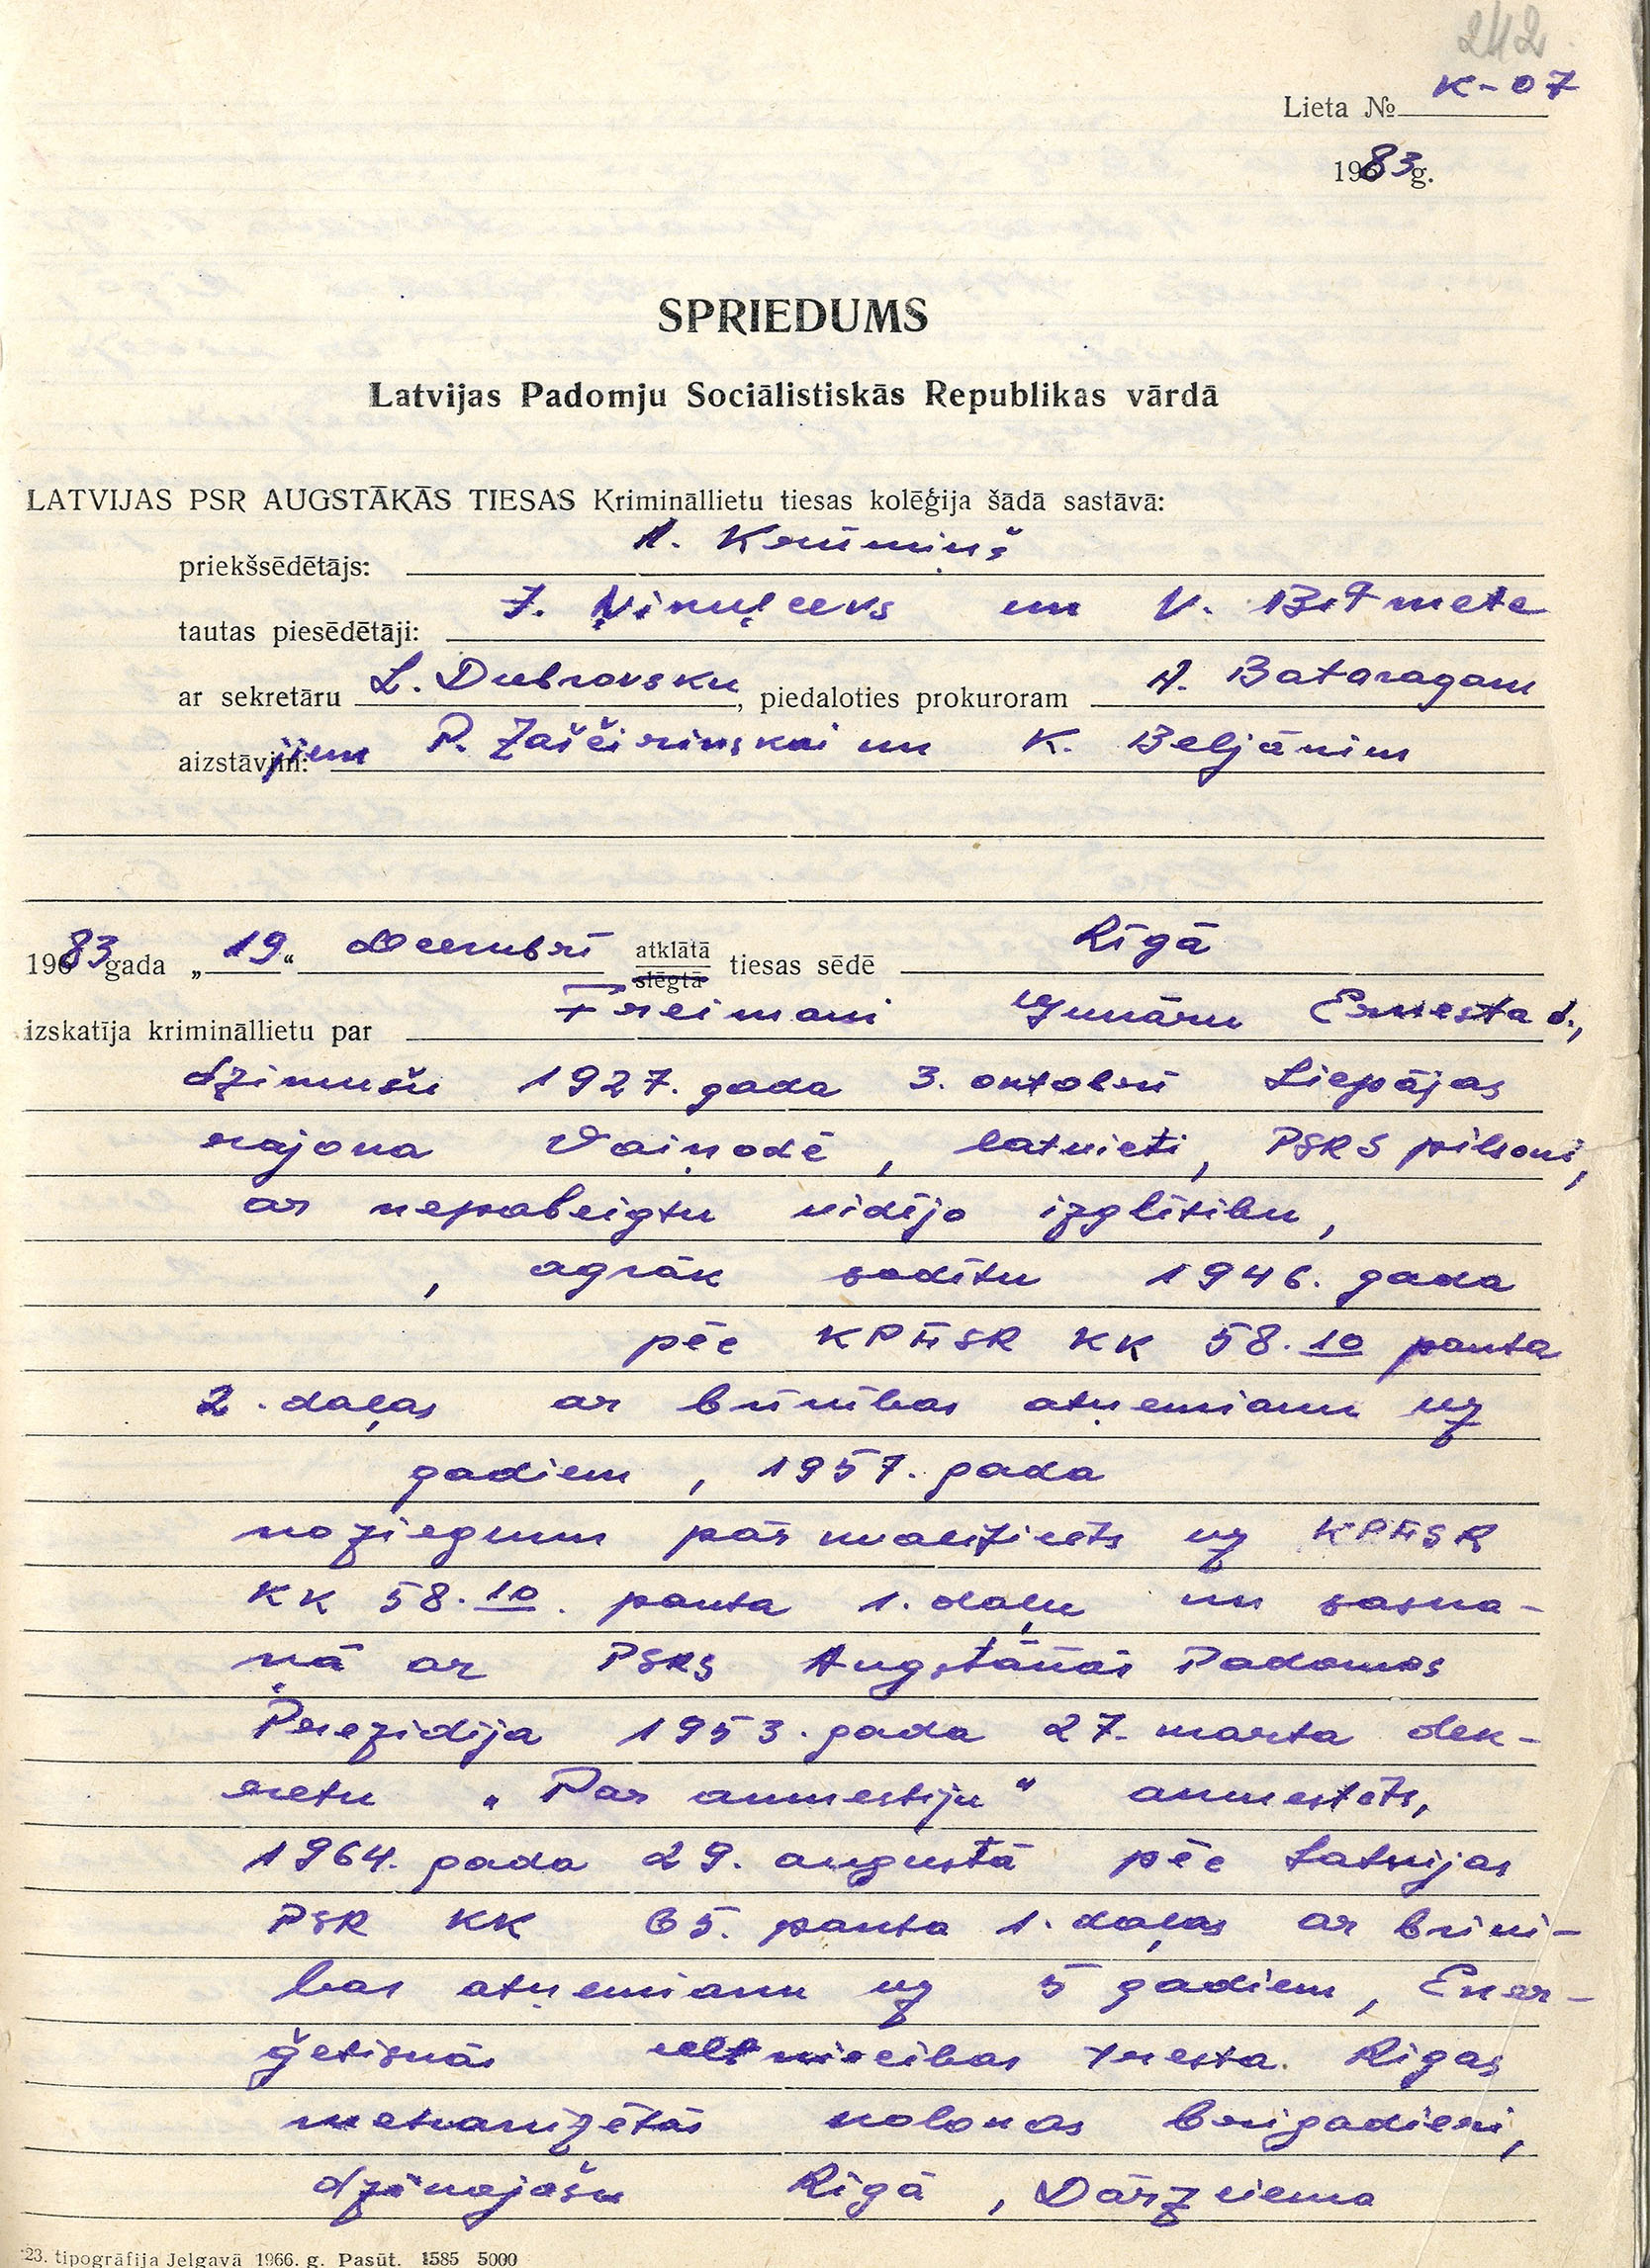 242
K-07
Lieta №
1983 g.
SPRIEDUMS
Latvijas Padomju Sociālistiskās Republikas vārdā
LATVIJAS PSR AUGSTĀKĀS TIESAS Krimināllietu tiesas kolēģija šādā sastāvā:
priekšsēdētājs: A. Krūmiņš
tautas piesēdētāji: J. Ņikuļcevs un V. Bitmete
ar sekretāru L. Dubrovsku, piedaloties prokuroram A. Bataragam
aizstāvjiem P. Zaščirinskai un K. Beljānim
1983 gada „19“ decembrī atklātā slēgtā tiesas sēdē Rīgā
izskatīja krimināllietu par Freimani Gunāru Ernesta d.,
dzimušu 1927. gada 3. oktobrī Liepājas
rajona Vaiņodē, latvieti, PSRS pilsoni,
ar nepabeigtu vidējo izglītību,
, agrāk sodītu 1946. gada
pēc KPFSR KK 58.10 panta
2. daļas ar brīvības atņemšanu uz
gadiem, 1957. gada
noziegum pārkvalificēts uz KPFSR
KK 58.10. panta 1. daļu un saska-
ņā ar PSRS Augstākās Padomes
Prezidija 1953. gada 27. marta dek-
retu „Par amnestiju“ amnestēts,
1964. gada 29. augustā pēc Latvijas
PSR KK 65. panta 1. daļas ar brīvī-
bas atņemšanu uz 5 gadiem, Ener-
ģētiskās celtniecības tresta. Rīgas
mehanizētās kolonas brigadieri,
dzīvojošu Rīgā, Dārzciema
23. tipogrāfija Jelgavā 1966. g. Pasūt. 1585 5000